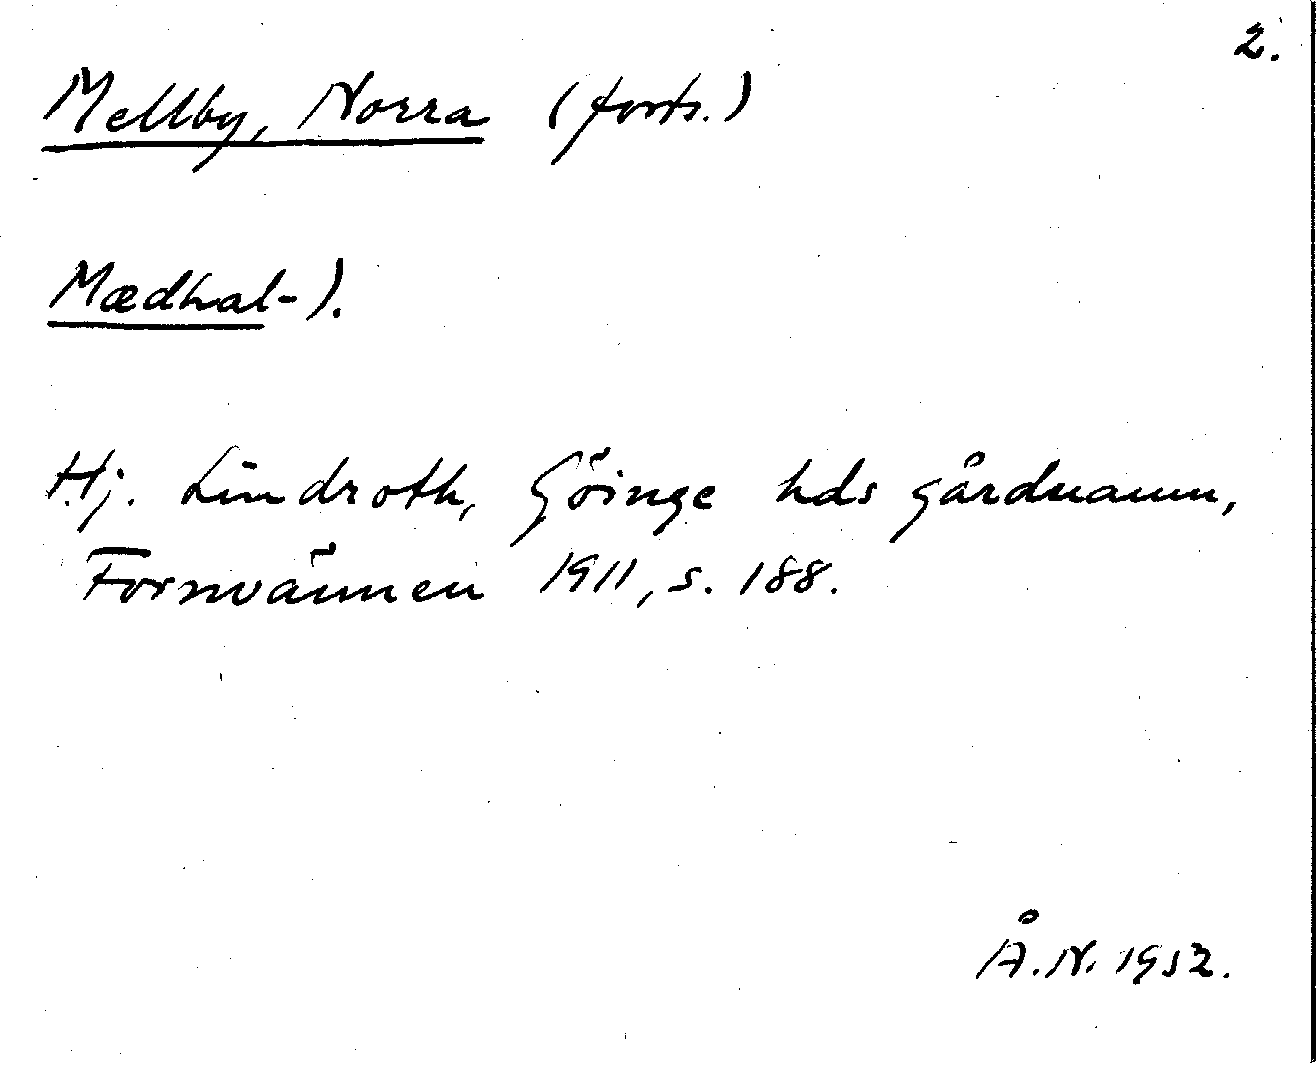 2.
Mellby, Norra (forts.)
Mædhal-).
Hj. Lindroth, Göinge hds gårdnamn,
Fornvännen 1911, s. 188.
Å.N. 1952.